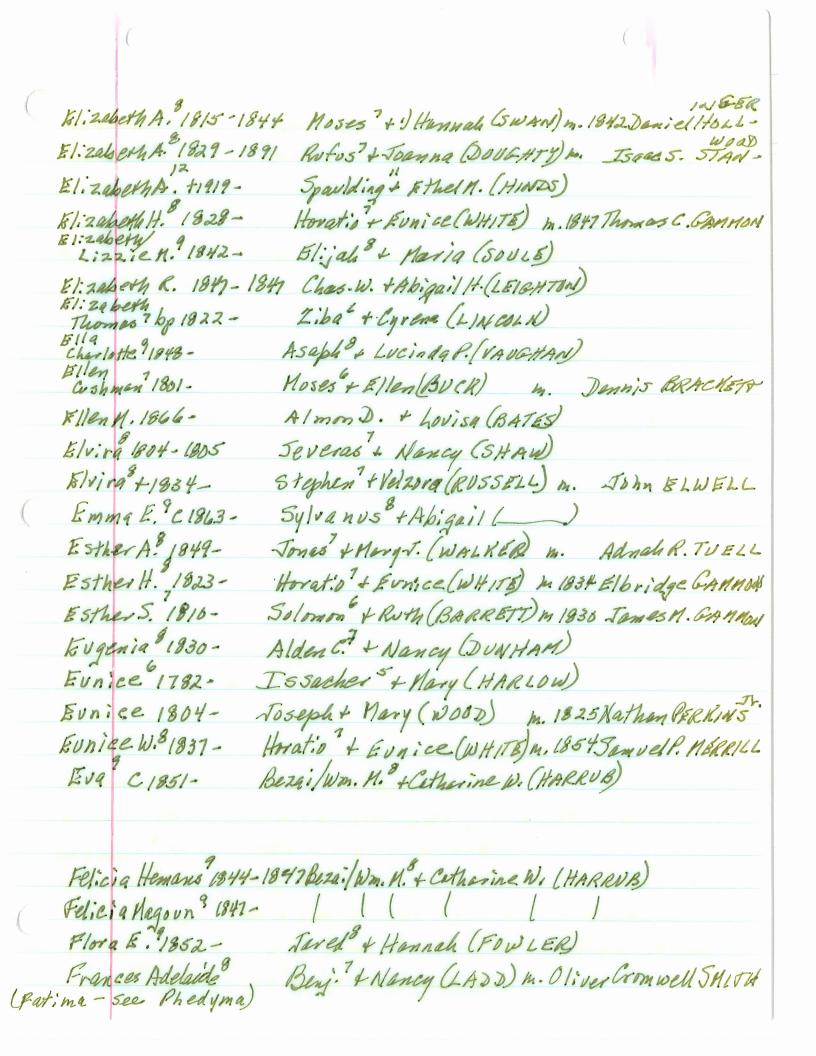 Elizabeth A.⁸ 1815-1844 Moses⁷ + 1) Hannah (SWAN) m. 1842 Daniel HOLL-INGER
Elizabeth A.⁸ 1829-1891 Rufus⁷ + Joanna (DOUGHTY) m. Isaac S. STAN-WOOD
Elizabeth A.¹² +1919- Spaulding¹¹ + Ethel M. (HINDS)
Elizabeth H.⁸ 1828- Horatio⁷ + Eunice (WHITE) m. 1847 Thomas C. GAMMON
Elizabeth/
Lizzie M.⁹ 1842- Elijah⁸ + Maria (SOULE)
Elizabeth R. 1847-1847 Chas. W. + Abigail H. (LEIGHTON)
Elizabeth
Thomas⁷ bp 1822- Ziba⁶ + Cyrena (LINCOLN)
Ella
Charlotte⁹ 1848- Asaph⁸ + Lucinda P. (VAUGHAN)
Ellen
Cushman⁷ 1801- Moses⁶ + Ellen (BUCK) m. Dennis BRACKETT
Ellen M. 1866- Almon D. + Lovisa (BATES)
Elvira⁸ 1804-1805 Severas⁷ + Nancy (SHAW)
Elvira⁸ +1834- Stephen⁷ + Velzora (RUSSELL) m. John ELWELL
Emma E.⁹ c 1863- Sylvanus⁸ + Abigail ( )
Esther A.⁸ 1849- Jonas⁷ + Mary J. (WALKER) m. Adnah R. TUELL
Esther H.⁸ 1823- Horatio⁷ + Eunice (WHITE) m 1834 Elbridge GAMMON
Esther S.⁷ 1810- Solomon⁶ + Ruth (BARRETT) m 1830 James M. GAMMON
Eugenia⁸ 1830- Alden C.⁷ + Nancy (DUNHAM)
Eunice⁶ 1782- Issacher⁵ + Mary (HARLOW)
Eunice 1804- Joseph + Mary (WOOD) m. 1825 Nathan PERKINS Jr.
Eunice W.⁸ 1837- Horatio⁷ + Eunice (WHITE) m. 1854 Samuel P. MERRILL
Eva⁹ C 1851- Bezai/Wm. M.⁸ + Catharine W. (HARRUB)
Felicia Hemans⁹ 1844-1847 Bezai/Wm. M.⁸ + Catharine W. (HARRUB)
Felicia Magoun⁹ 1847-
Flora E.⁹ 1852- Jared⁸ + Hannah (FOWLER)
Frances Adelaide⁸ Benj.⁷ + Nancy (LADD) m. Oliver Cromwell SMITH
(Fatima - see Phedyma)